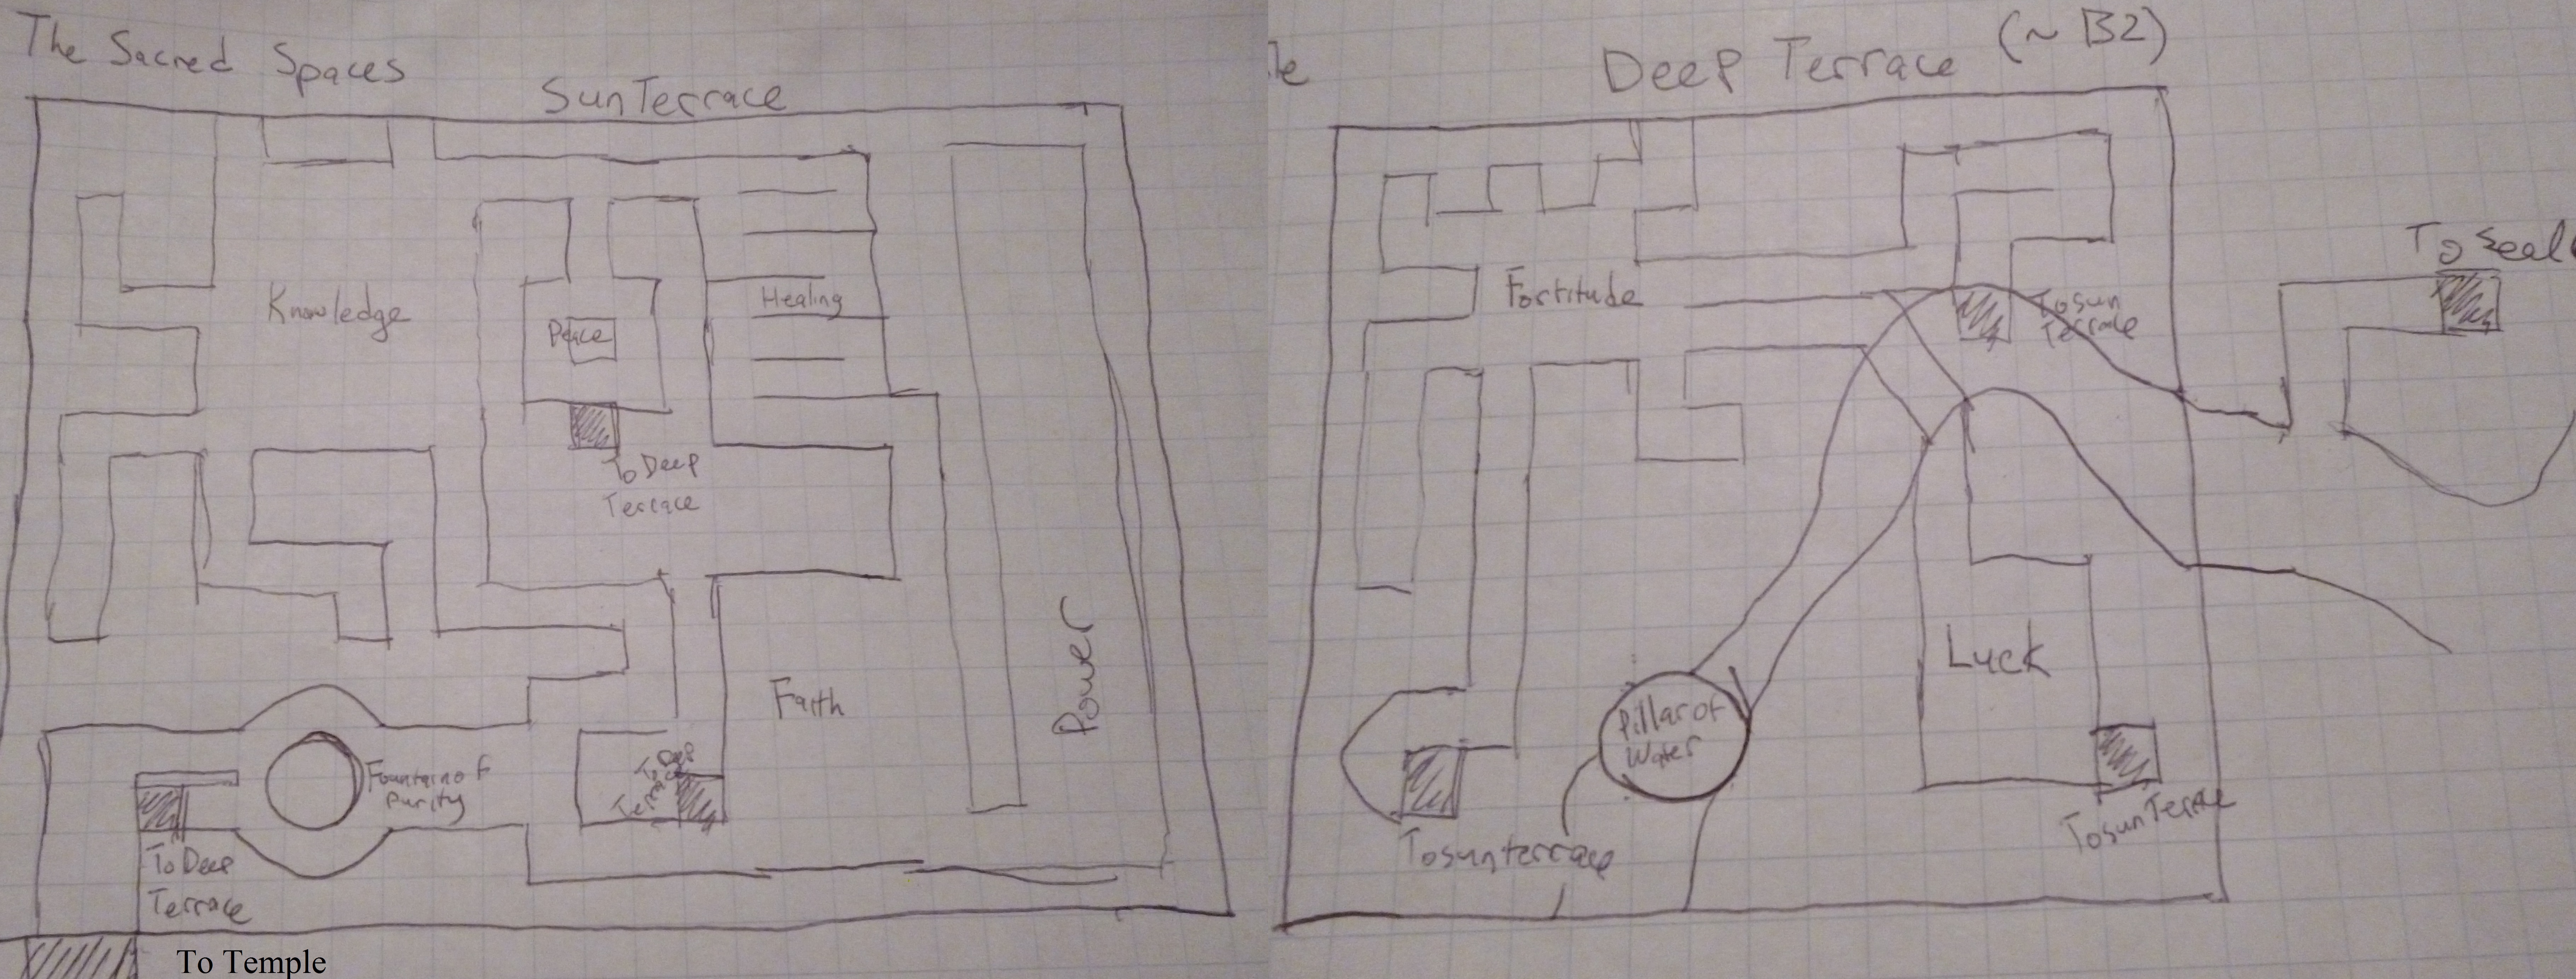 The Sacred Spaces
Sun Terrace
Knowledge
Peace
Healing
To Deep
Terrace
Faith
Power
Fountain of
Purity
To Deep
Terrace
To Deep
Terrace
To Temple
Deep Terrace (~ B2)
Fortitude
To sun
Terrace
Luck
Pillar of
Water
To sun terrace
To sun Terrace